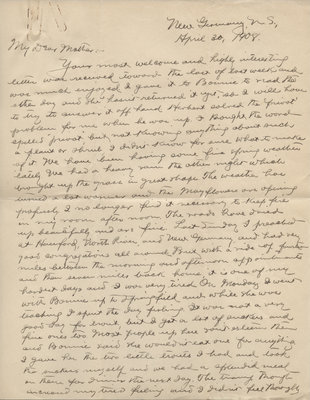 New Germany, N.S.,
April 30, 1908.
My Dear Mother:-
Yours most welcome and highly interesting
letter was received toward the last of last week, and
was much enjoyed. I gave it to Bonnie to read the
other day and she hasn't returned it yet, so I will have
to try to answer it off hand. Herbert solved the
problem for me when he was up. I thought the word
spelled but not knowing anything about such
a plant or shrub I didn't know for sure what to make
of it. We have been having some fine spring weather
lately. We had a heavy rain the other night which
brought up the grass in great shape. The weather has
turned a lot warmer and the Mayflowers are opening
properly. I no longer find it necessary to keep fire
in my room after noon. The roads have dried
up beautifully and are fine. Last Sunday I preached
at Hemford, North River and New Germany and had very
good congregations all around. Time with a ride of
miles between the morning and afternoon appointments
and then seven miles back home, it is one of my
hardest days and I was very tired. On Monday I went
with Bonnie up to Springfield and while she was
teaching I spent the day fishing. It was not a very
good day for trout, but I got a lot of suckers and
fine ones too. Most people up here
and Bonnie said she would not eat one for anything
I gave her the two little trouts I had and took
the suckers myself and we had a splendid meal
on them for dinner the next day. The tramp
increased my tired feeling and I didn't feel